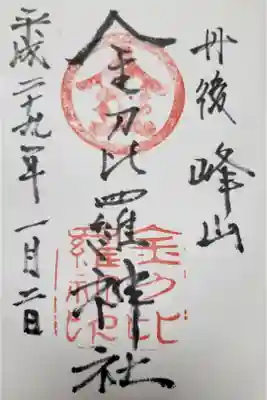 丹後 峰山
金刀比羅神社
平成二十九年 一月二日
金刀比
羅神社
印